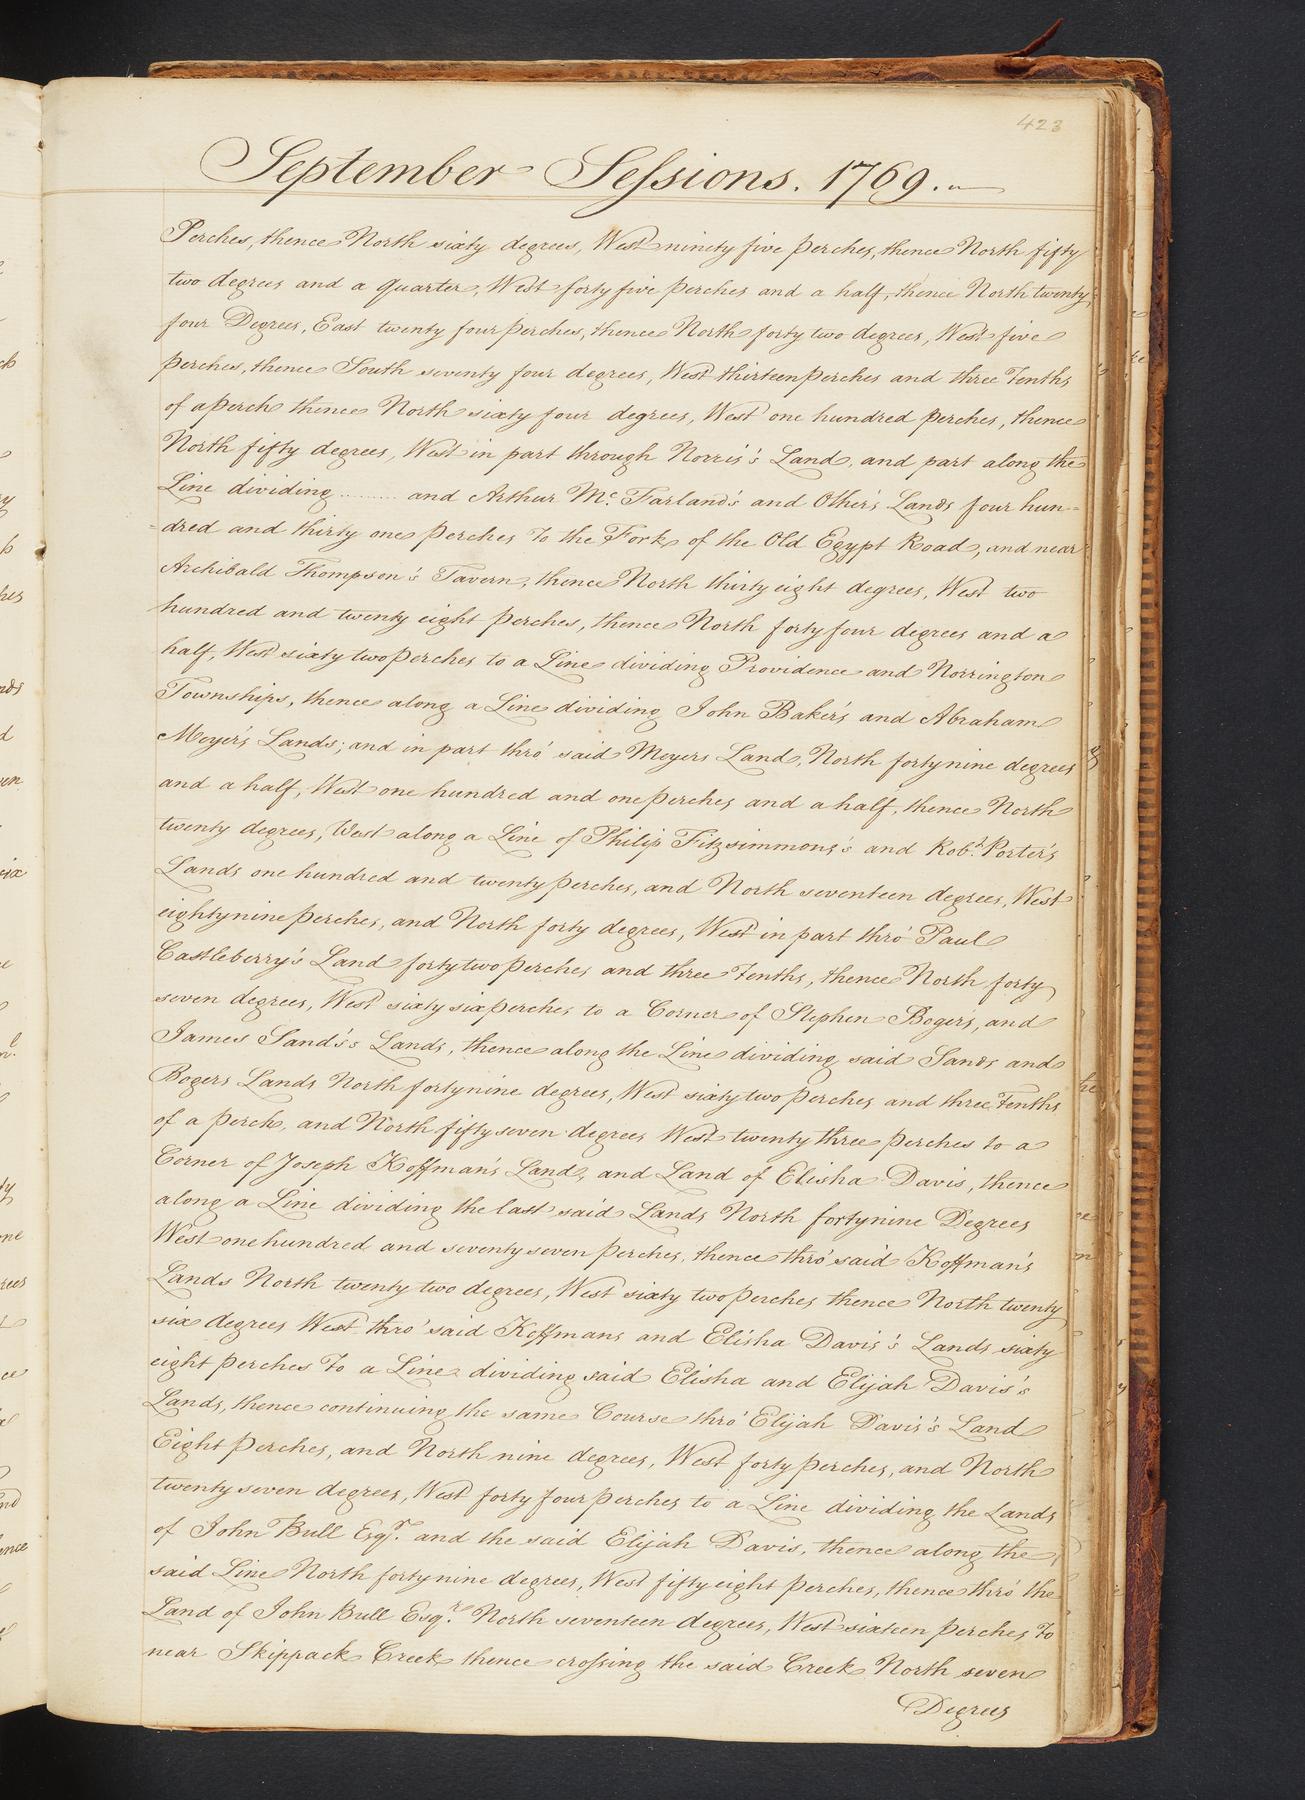 423
September Sessions. 1769.
Perches, thence North sixty degrees, West ninety five perches, thence North fifty
two degrees and a quarter, West forty five perches and a half, thence North twenty
four Degrees, East twenty four perches, thence North forty two degrees, West five
perches, thence South seventy four degrees, West thirteen perches and three Tenths
of a Perch thence North sixty four degrees, West one hundred perches, thence
North fifty degrees, West in part through Norris's Land, and part along the
Line dividing ........ and Arthur Mc. Farland's and Other's Lands four hun=
=dred and thirty one perches To the Fork of the Old Egypt Road, and near
Archibald Thompson's Tavern, thence North thirty eight degrees, West two
hundred and twenty eight perches, thence North forty four degrees and a
half, West sixty two perches to a Line dividing Providence and Norrington
Townships, thence along a Line dividing John Baker's and Abraham
Meyer's Lands; and in part thro' said Meyers Land, North forty nine degrees
and a half, West one hundred and one perches and a half, thence North
twenty degrees, West along a Line of Philip Fitzsimmons's and Robt. Porter's
Lands one hundred and twenty perches, and North seventeen degrees, West
eighty nine perches, and North forty degrees, West in part thro' Paul
Castleberry's Land forty two perches and three Tenths, thence North forty
seven degrees, West sixty six perches to a Corner of Stephen Boger's, and
James Sands's Lands, thence along the Line dividing said Sands and
Bogers Lands North forty nine degrees, West sixty two perches and three Tenths
of a perch, and North fifty seven degrees West twenty three perches to a
Corner of Joseph Koffman's Land, and Land of Elisha Davis, thence
along a Line dividing the last said Lands North forty nine Degrees
West one hundred and seventy seven perches, thence thro' said Koffman's
Lands North twenty two degrees, West sixty two perches thence North twenty
six degrees West thro' said Koffmans and Elisha Davis's Lands sixty
eight perches To a Line dividing said Elisha and Elijah Davis's
Lands, thence continuing the same Course thro' Elijah Davis's Land
Eight perches, and North nine degrees, West forty perches, and North
twenty seven degrees, West forty four perches to a Line dividing the Lands
of John Bull Esqr. and the said Elijah Davis, thence along the
said Line North forty nine degrees, West fifty eight perches, thence thro' the
Land of John Bull Esqr. North seventeen degrees, West sixteen perches To
near Skippack Creek thence crossing the said Creek North seven
Degrees